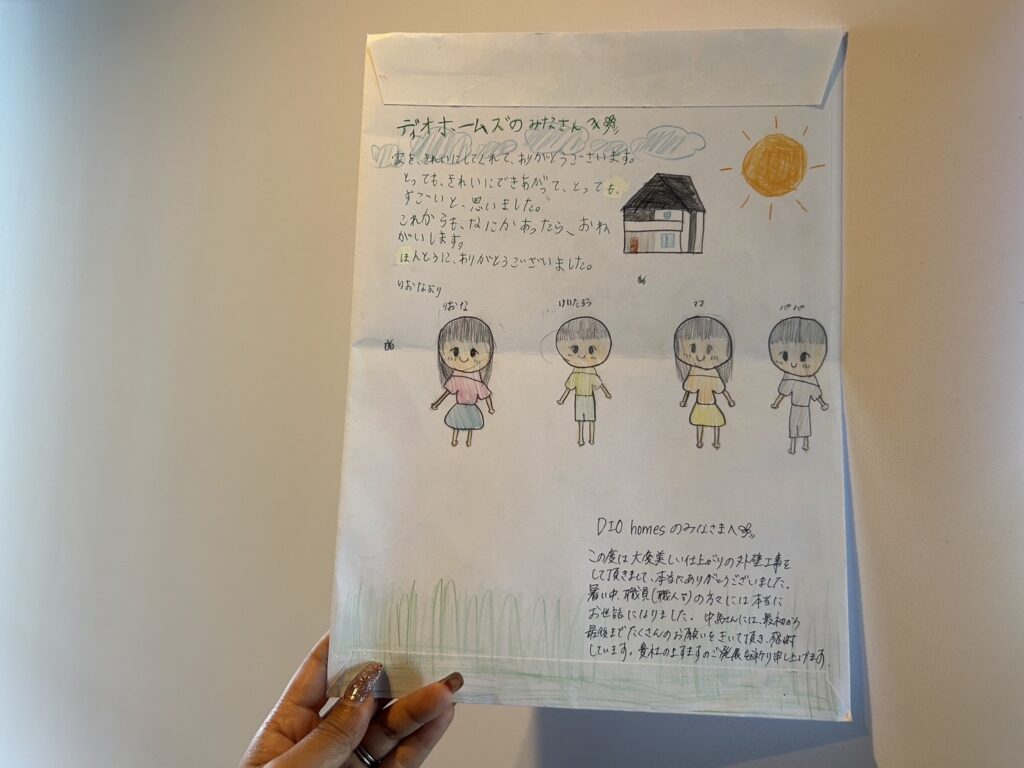 ディオホームズの みなさんへ
家を、きれいにしてくれて、ありがとうございます。
とっても、きれいにできあがって、とっても、
すごいと、思いました。
これからも、なにかあったら、おね
がいします。
ほんとうに、ありがとうございました。
りおなより
りおな
けいたろう
ママ
パパ
DIO homes のみなさまへ
この度は大変美しい仕上がりの外壁工事を
して頂きまして、本当にありがとうございました。
暑い中、職員(職人す)の方々には本当に
お世話になりました。中島さんには、最初から
最後までたくさんのお願いをきいて頂き、感謝
しています。貴社のますますのご発展を祈り申し上げます。